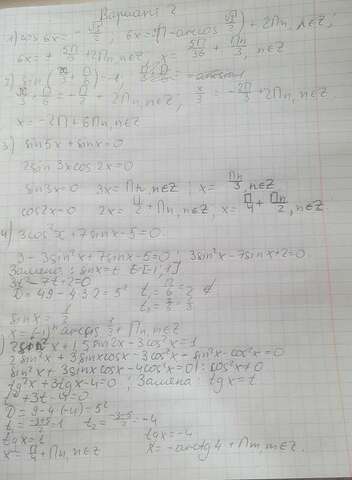 Вариант 2
1) cos 6x = - √3/2; 6x = ±(П - arccos √3/2) + 2Пn, n∈Z;
6x = ± 5П/6 + 2Пn, n∈Z x = ± 5П/36 + Пn/3, n∈Z
2) sin (x/3 + П/6) = -1,
x/3 + П/6 = - П/2 + 2Пn, n∈Z x/3 = - 2П/3 + 2Пn, n∈Z
x = -2П + 6Пn, n∈Z
3) sin5x + sinx = 0
2sin 3x cos 2x = 0
sin3x = 0 3x = Пn, n∈Z; x = Пn/3, n∈Z
cos2x = 0 2x = П/2 + Пn, n∈Z, x = П/4 + Пn/2, n∈Z
4) 3cos²x + 7sinx - 5 = 0
3 - 3sin²x + 7sinx - 5 = 0; 3sin²x - 7sinx + 2 = 0
Замена: sinx = t t∈[-1,1]
3t² - 7t + 2 = 0
D = 49 - 4·3·2 = 5² t₁ = 12/6 = 2 ∉
t₂ = 2/6 = 1/3
sinx = 1/3
x = (-1)ⁿ arcsin 1/3 + Пn, n∈Z
2sin²x + 1,5sin2x - 3cos²x = 1
2sin²x + 3sinxcosx - 3cos²x - sin²x - cos²x = 0
sin²x + 3sinxcosx - 4cos²x = 0 | : cos²x ≠ 0
tg²x + 3tgx - 4 = 0; Замена: tgx = t
t² + 3t - 4 = 0
D = 9 - 4·(-4) = 5²
t₁ = (-3+5)/2 = 1 t₂ = (-3-5)/2 = -4
tgx = 1 tgx = -4
x = П/4 + Пn, n∈Z x = -arctg 4 + Пm, m∈Z